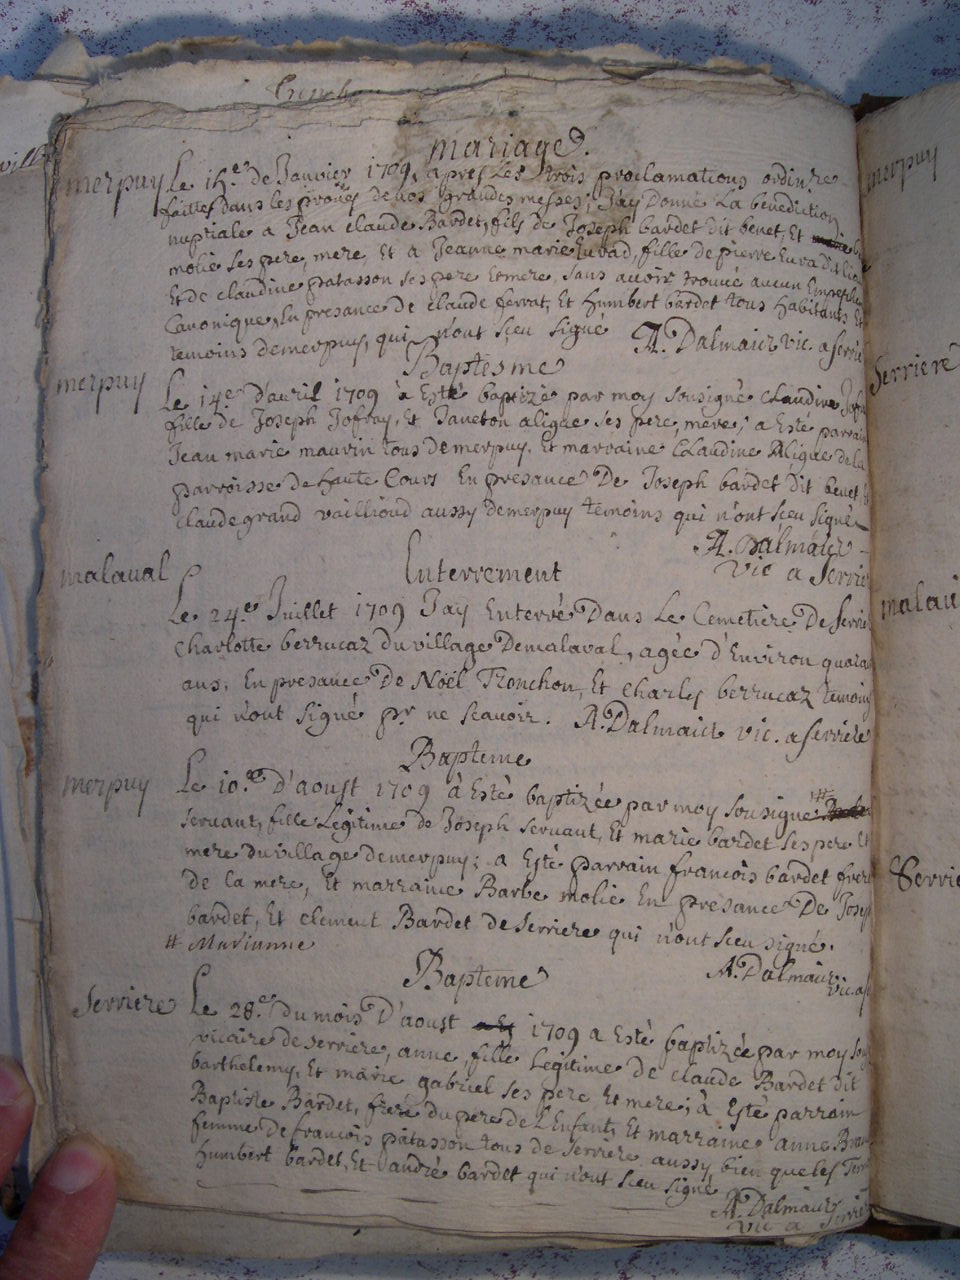 mariage.
merpuy Le 15.e de Janvier 1709, apres Les trois proclamations ordinre
faittes dans les prones de nos grandes messes, J'ay Donné La benediction
nuptiale a Jean claude Bardet, fils de Joseph bardet dit benet, Et
molie ses pere, mere, Et a Jeanne marie Euvad, fille de pierre Euvad
Et de claudine patasson ses pere Et mere, sans avoir trouvé aucun Empeche
Canonique, En presance De Claude ferrat, Et Humbert bardet tous Habitants Et
temoins demerpuy, qui n'ont sceu signé A. Dalmaiz vic. a serrie
Baptesme
merpuy Le 14e D'auril 1709 à Esté baptizé par moy sousigné Claudine Jofr
fille de Joseph Jofray, Et Janeton aligue ses pere, mere; a Esté parrain
Jean marie maurin tous Demerpuy, Et marraine Claudine Aligue de la
parroisse de Haute Cours En presance De Joseph bardet Dit benet
claude grand vaillioud aussy demerpuy temoins qui n'ont sceu signé
A. Dalmaiz
vic a serrie
Interrement
malaval Le 24.e Juillet 1709 Jay Enterré Dans Le Cemetiere De serrie
Charlotte berrucaz du village Demalaval, agée d'Environ quara
ans, En presance De Noël Tronchon, Et Charles berrucaz temoins
qui n'ont signé pr ne scavoir. A. Dalmaiz vic. a serriere
Bapteme
merpuy Le 10.e D'aoust 1709 à Esté baptizée par moy sousigné #
servant, fille Legitime de Joseph servant, Et marie bardet ses pere Et
mere du village demerpuy; a Esté parrain francois bardet frere
de la mere, Et marraine Barbe molie En presance De Josep
bardet, Et clement Bardet de serriere qui n'ont sceu signé.
# Marianne
A. Dalmaiz
vic. a s
Bapteme
Serriere Le 28.e du mois D'aoust 1709 a Esté baptizée par moy sou
vicaire de serriere, anne fille Legitime De claude Bardet dit
barthelemy, Et marie gabriel ses pere Et mere; à Esté parrain
Baptiste Bardet, frere du pere de L'Enfant, Et marraine anne
femme de francois patasson tous de serriere aussy bien que les
Humbert bardet, Et andré bardet qui n'ont sceu signé
A. Dalmaiz
vic a serrie
merpuy
Serriere
malau
Serrie